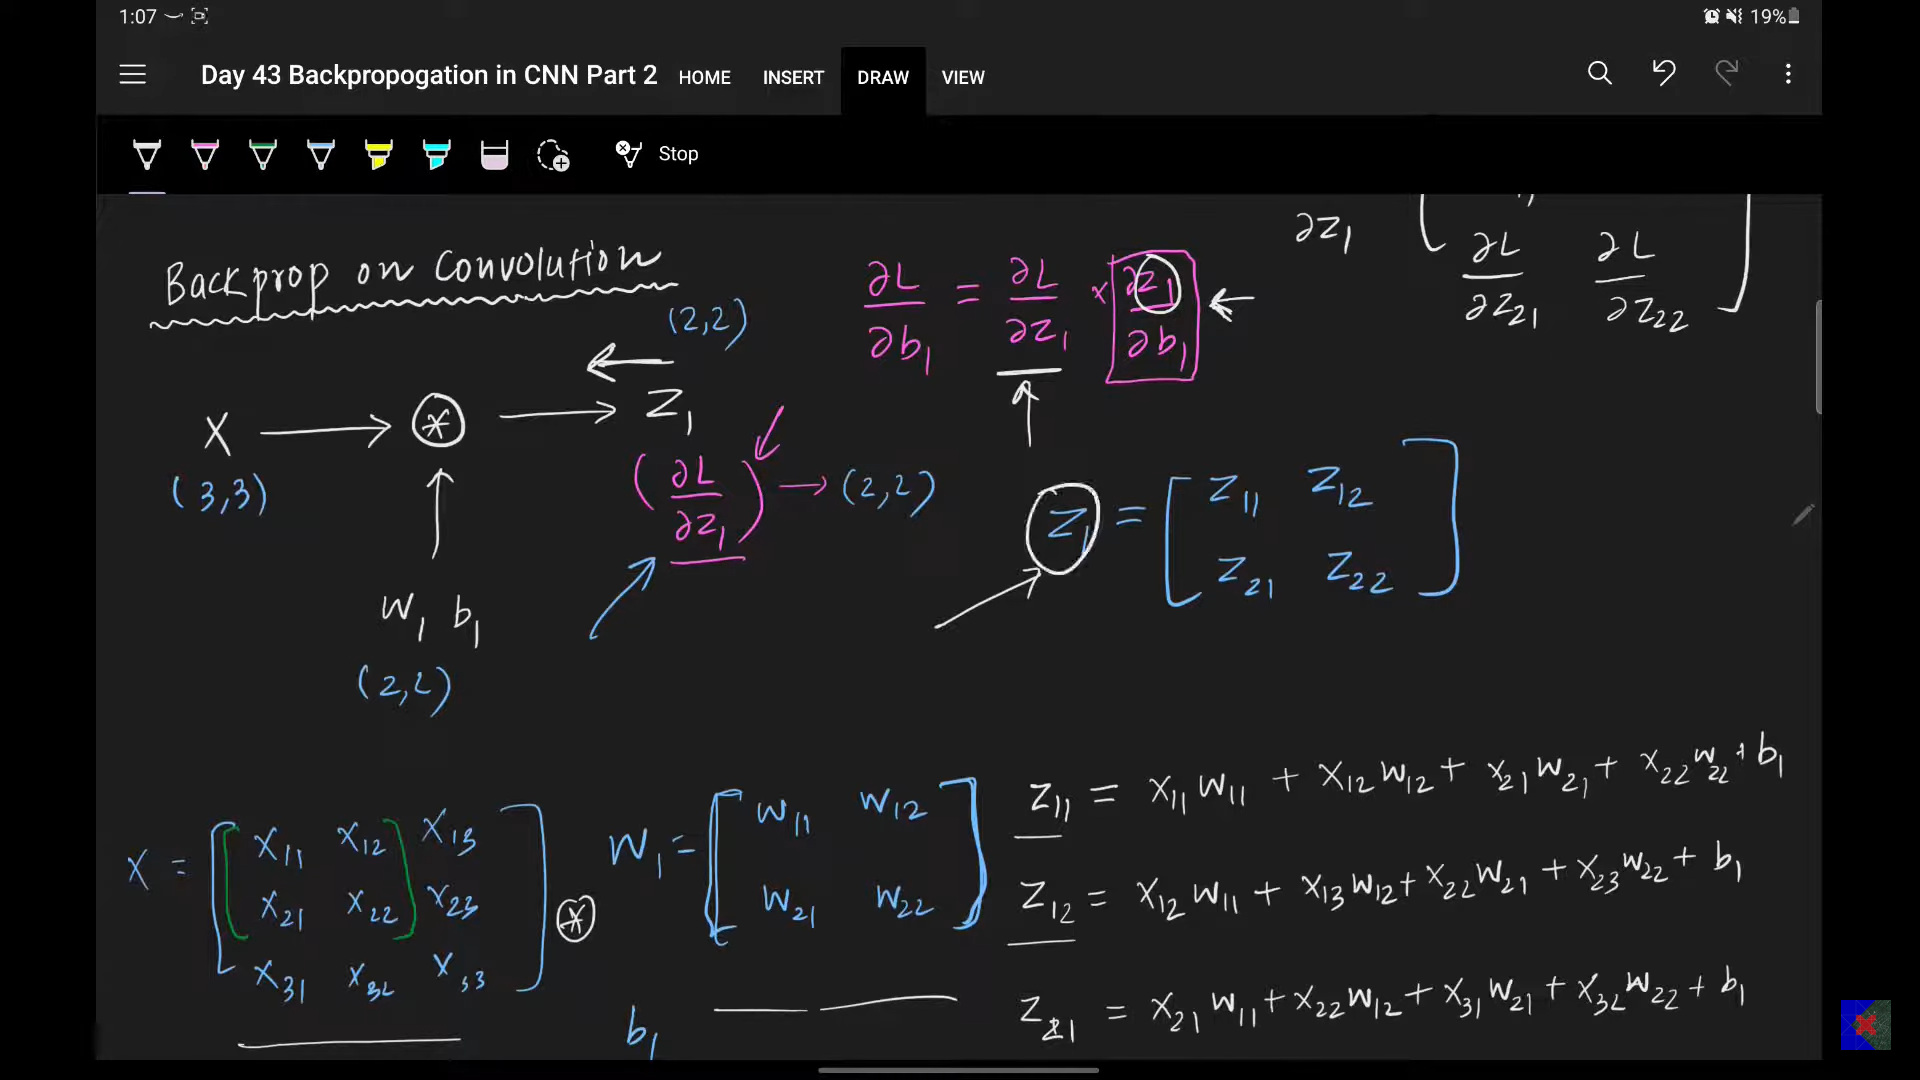 1:07 19%
Day 43 Backpropogation in CNN Part 2 HOME INSERT DRAW VIEW
Stop
Backprop on Convolution
(2,2)
∂L/∂b₁ = ∂L/∂z₁ × ∂z₁/∂b₁
∂z₁
∂L/∂z₂₁ ∂L/∂z₂₂
X → ⊛ → Z₁
(3,3)
(∂L/∂z₁) → (2,2)
W₁ b₁
(2,2)
Z₁ = [ Z₁₁ Z₁₂
Z₂₁ Z₂₂ ]
X = [ X₁₁ X₁₂ X₁₃
X₂₁ X₂₂ X₂₃
X₃₁ X₃₂ X₃₃ ]
⊛
W₁ = [ W₁₁ W₁₂
W₂₁ W₂₂ ]
b₁
Z₁₁ = X₁₁W₁₁ + X₁₂W₁₂ + X₂₁W₂₁ + X₂₂W₂₂ + b₁
Z₁₂ = X₁₂W₁₁ + X₁₃W₁₂ + X₂₂W₂₁ + X₂₃W₂₂ + b₁
Z₂₁ = X₂₁W₁₁ + X₂₂W₁₂ + X₃₁W₂₁ + X₃₂W₂₂ + b₁